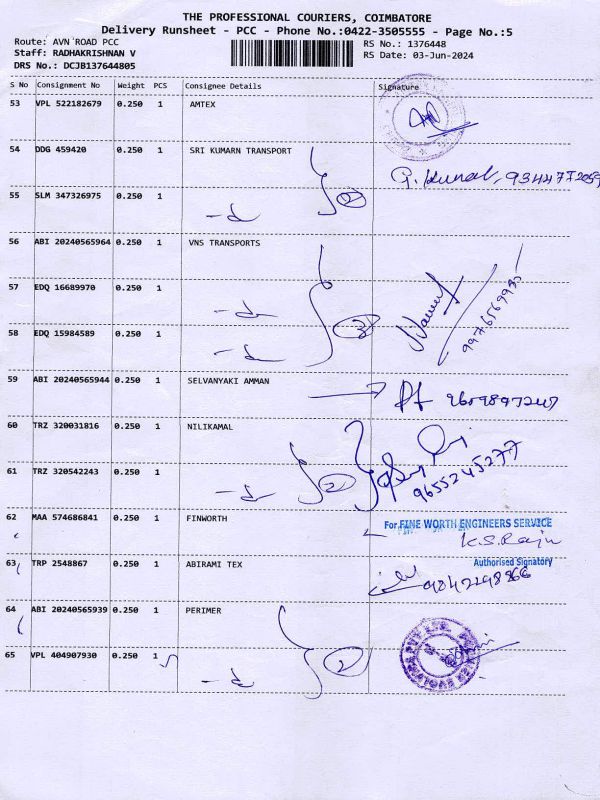 THE PROFESSIONAL COURIERS, COIMBATORE
Delivery Runsheet - PCC - Phone No.:0422-3505555 - Page No.:5
Route: AVN ROAD PCC RS No.: 1376448
Staff: RADHAKRISHNAN V RS Date: 03-Jun-2024
DRS No.: DCJB137644805
S No Consignment No Weight PCS Consignee Details Signature
53 VPL 522182679 0.250 1 AMTEX
54 DDG 459420 0.250 1 SRI KUMARN TRANSPORT
2
55 SLM 347326975 0.250 1
56 ABI 20240565964 0.250 1 VNS TRANSPORTS
57 EDQ 16689970 0.250 1
3
58 EDQ 15984589 0.250 1
59 ABI 20240565944 0.250 1 SELVANYAKI AMMAN
60 TRZ 320031816 0.250 1 NILIKAMAL
61 TRZ 320542243 0.250 1 2 9655245277
62 MAA 574686841 0.250 1 FINWORTH For FINE WORTH ENGINEERS SERVICE
K.S.Raju
63 TRP 2548867 0.250 1 ABIRAMI TEX Authorised Signatory
64 ABI 20240565939 0.250 1 PERIMER
65 VPL 404907930 0.250 1 2